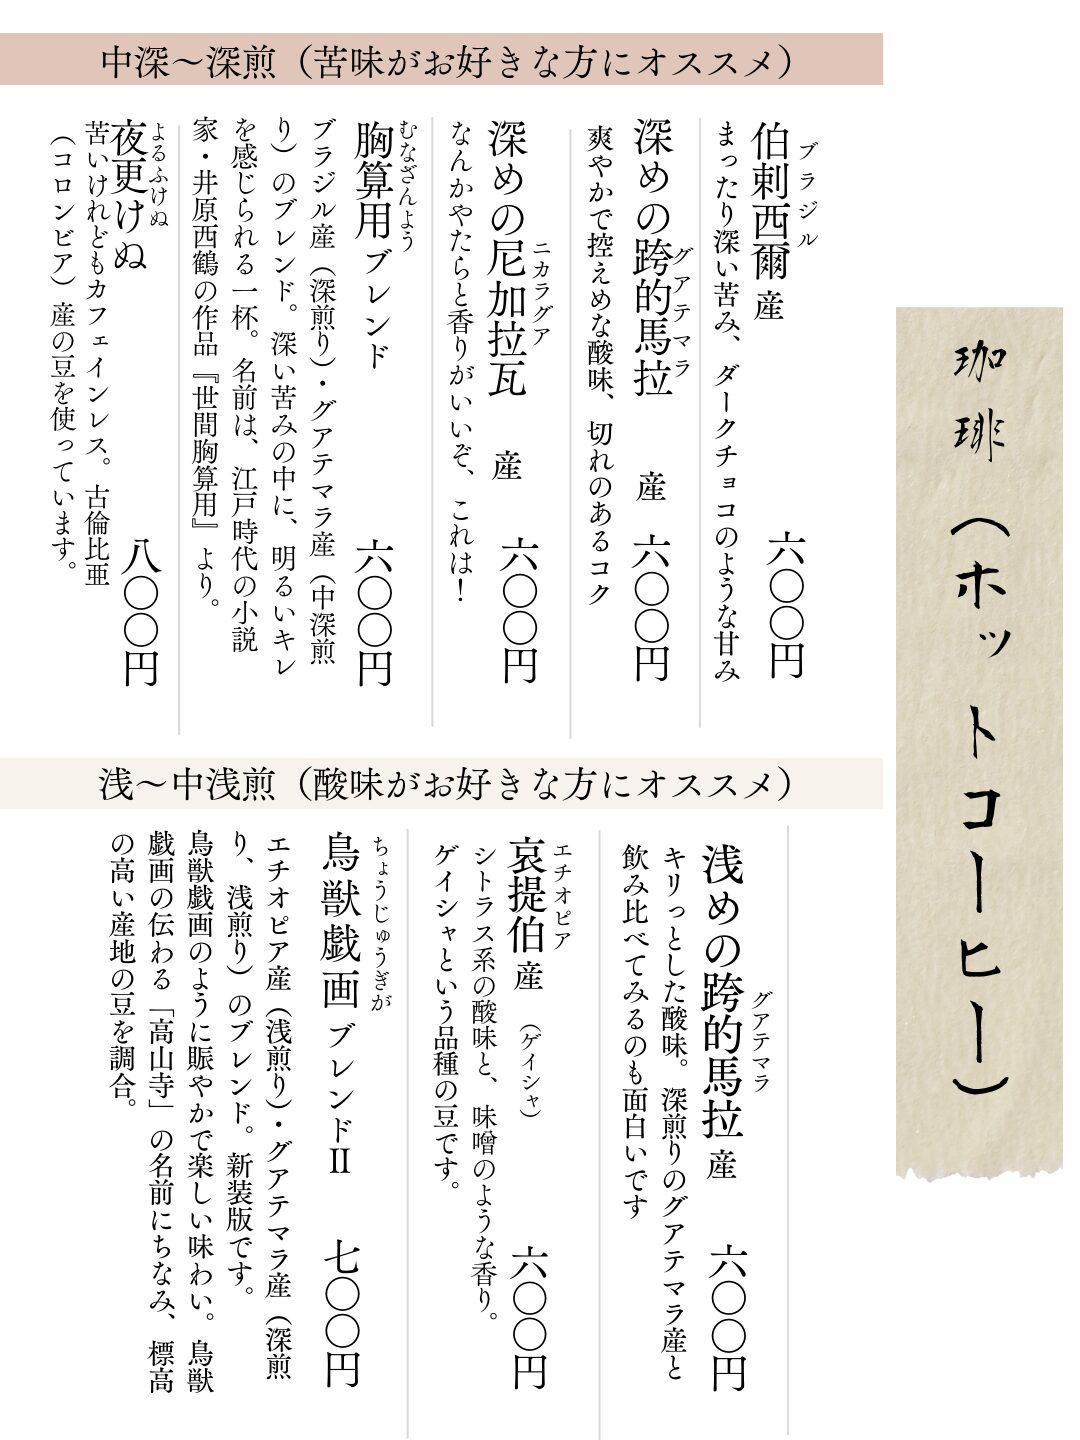 珈琲（ホットコーヒー）
中深〜深煎（苦味がお好きな方にオススメ）
ブラジル
伯剌西爾 産 六〇〇円
まったり深い苦み、ダークチョコのような甘み
グアテマラ
深めの跨的馬拉 産 六〇〇円
爽やかで控えめな酸味、切れのあるコク
ニカラグア
深めの尼加拉瓦 産 六〇〇円
なんかやたらと香りがいいぞ、これは！
むなざんよう
胸算用 ブレンド 六〇〇円
ブラジル産（深煎り）・グアテマラ産（中深煎
り）のブレンド。深い苦みの中に、明るいキレ
を感じられる一杯。名前は、江戸時代の小説
家・井原西鶴の作品『世間胸算用』より。
よるふけぬ
夜更けぬ 八〇〇円
苦いけれどもカフェインレス。古倫比亜
（コロンビア）産の豆を使っています。
浅〜中浅煎（酸味がお好きな方にオススメ）
グアテマラ
浅めの跨的馬拉 産 六〇〇円
キリっとした酸味。深煎りのグアテマラ産と
飲み比べてみるのも面白いです
エチオピア
哀提伯 産 （ゲイシャ） 六〇〇円
シトラス系の酸味と、味噌のような香り。
ゲイシャという品種の豆です。
ちょうじゅうぎが
鳥獣戯画 ブレンドⅡ 七〇〇円
エチオピア産（浅煎り）・グアテマラ産（深煎
り、浅煎り）のブレンド。新装版です。
鳥獣戯画のように賑やかで楽しい味わい。鳥獣
戯画の伝わる「高山寺」の名前にちなみ、標高
の高い産地の豆を調合。